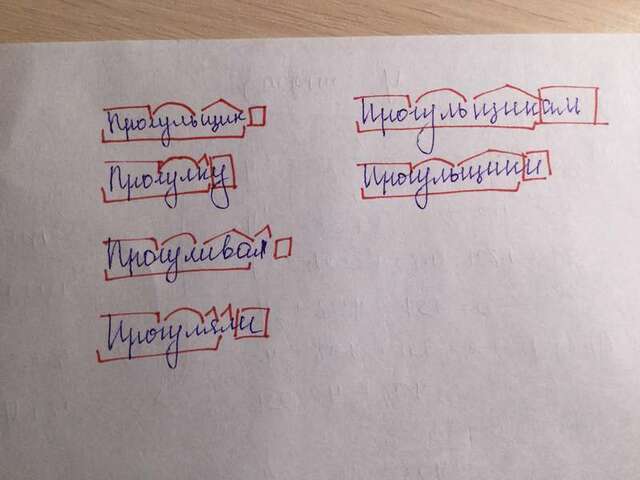 Прогульщик
Прогулку
Прогуливал
Прогуляли
Прогульщикам
Прогульщики